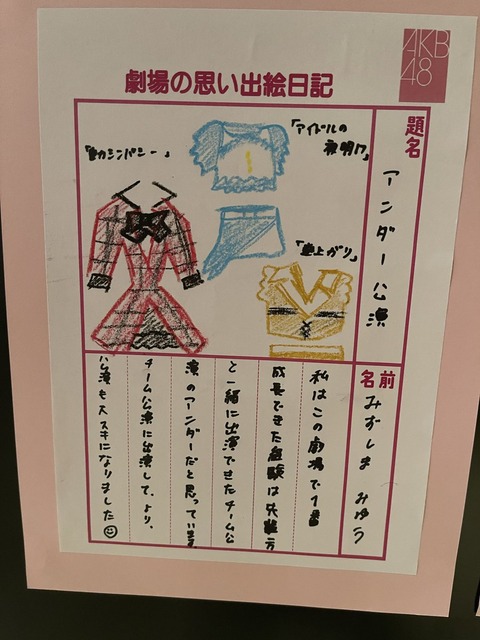 AKB
48
劇場の思い出絵日記
題名
アンダー公演
「アイドルの
夜明け」
「動力シンパシー」
「壁上がり」
名前
みずしま みゆう
私はこの劇場で1番
成長できた経験は先輩方
と一緒に出演できたチーム公
演のアンダーだと思っています。
チーム公演に出演して、より、
公演も大スキになりました